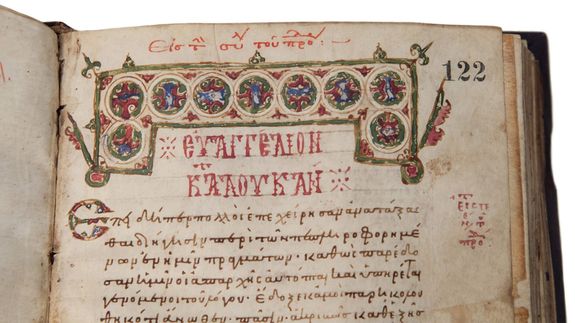 Εἰς τὴ συ τοῦ προ
122
ΕΥΑΓΓΕΛΙΟΝ
ΚΑΤ ΛΟΥΚΑΝ
Ἐπειδήπερ πολλοὶ ἐπεχείρησαν ἀνατάξα
σθαι διήγησιν περὶ τῶν πεπληροφορημέ
νων ἐν ἡμῖν πραγμάτων. καθὼς παρέδο
σαν ἡμῖν οἱ ἀπαρχῆς αὐτόπται καὶ ὑπηρέται
γενόμενοι τοῦ λόγου. ἔδοξε κἀμοὶ παρηκολου
θηκότι ἄνωθεν πᾶσιν ἀκριβῶς καθεξῆς